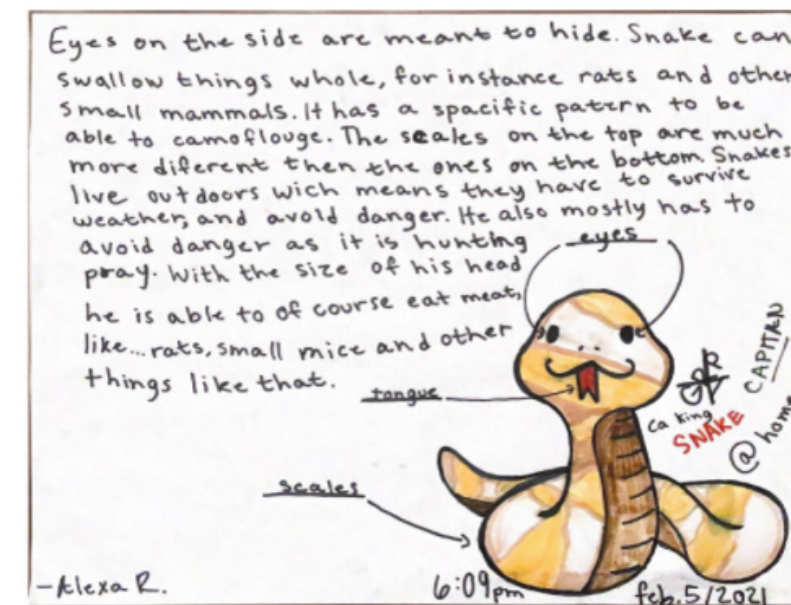 Eyes on the side are meant to hide. Snake can
swallow things whole, for instance rats and other
small mammals. It has a spacific patern to be
able to camoflouge. The scales on the top are much
more diferent then the ones on the bottom. Snakes
live outdoors wich means they have to survive
weather, and avoid danger. He also mostly has to
avoid danger as it is hunting
pray. With the size of his head
he is able to of course eat meat,
like... rats, small mice and other
things like that.
eyes
tongue
scales
CAPITAN
ca king
SNAKE
@ home
-Alexa R.
6:09pm
feb. 5/2021